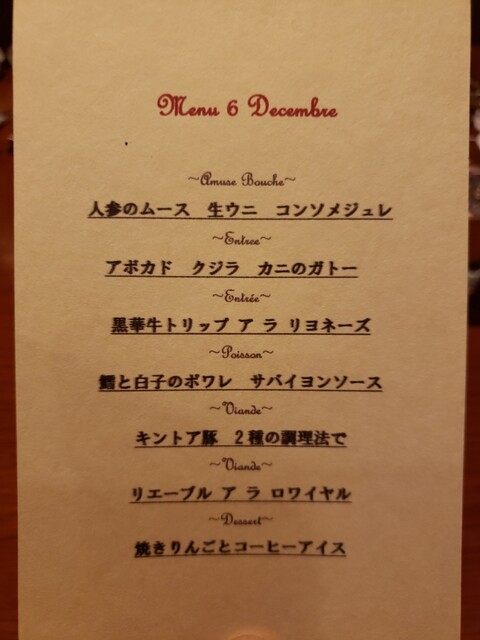 Menu 6 Decembre
~Amuse Bouche~
人参のムース 生ウニ コンソメジュレ
~Entree~
アボカド クジラ カニのガトー
~Entrée~
黒華牛トリップ ア ラ リヨネーズ
~Poisson~
鱈と白子のポワレ サバイヨンソース
~Viande~
キントア豚 2種の調理法で
~Viande~
リエーブル ア ラ ロワイヤル
~Dessert~
焼きりんごとコーヒーアイス